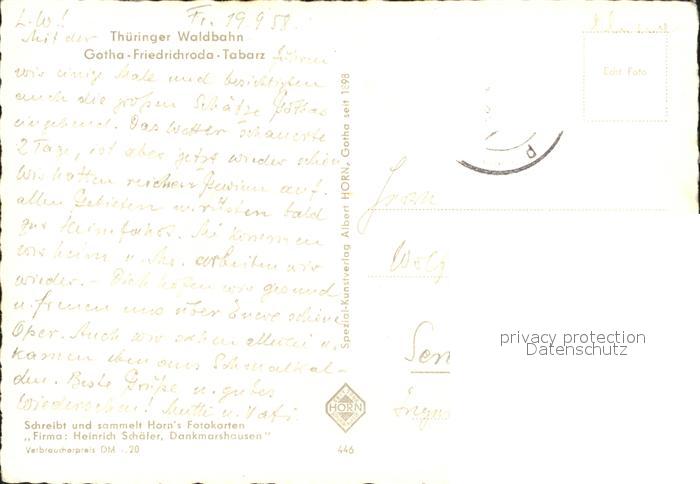 L. W.! Fr. 19.9.58.
Mit der Thüringer Waldbahn
Gotha-Friedrichroda-Tabarz fuhren
wir einige Male und besichtigten
auch die großen Schätze Gothas
eingehend. Das Wetter schauerte
2 Tage, ist aber jetzt wieder schön
Wir hatten reichen Gewinn auf
allen Gebieten u. rüsten bald
zur Heimfahrt. Sie kommen
wir heim u. arbeiten wir
wieder. - Dich hoffen wir gesund
u. freuen uns über Euere schöne
Oper. Auch wir sahen allerlei u.
kamen eben aus Schmalkal-
den. Beste Grüße u. gutes
Wiedersehen! Mutti u. Vati.
Schreibt und sammelt Horn's Fotokarten
„Firma: Heinrich Schäfer, Dankmarshausen"
Verbraucherpreis DM -,20
446
HORN
Spezial-Kunstverlag Albert HORN, Gotha seit 1898
Echt Foto
d
Wolf
Sen
privacy protection
Datenschutz